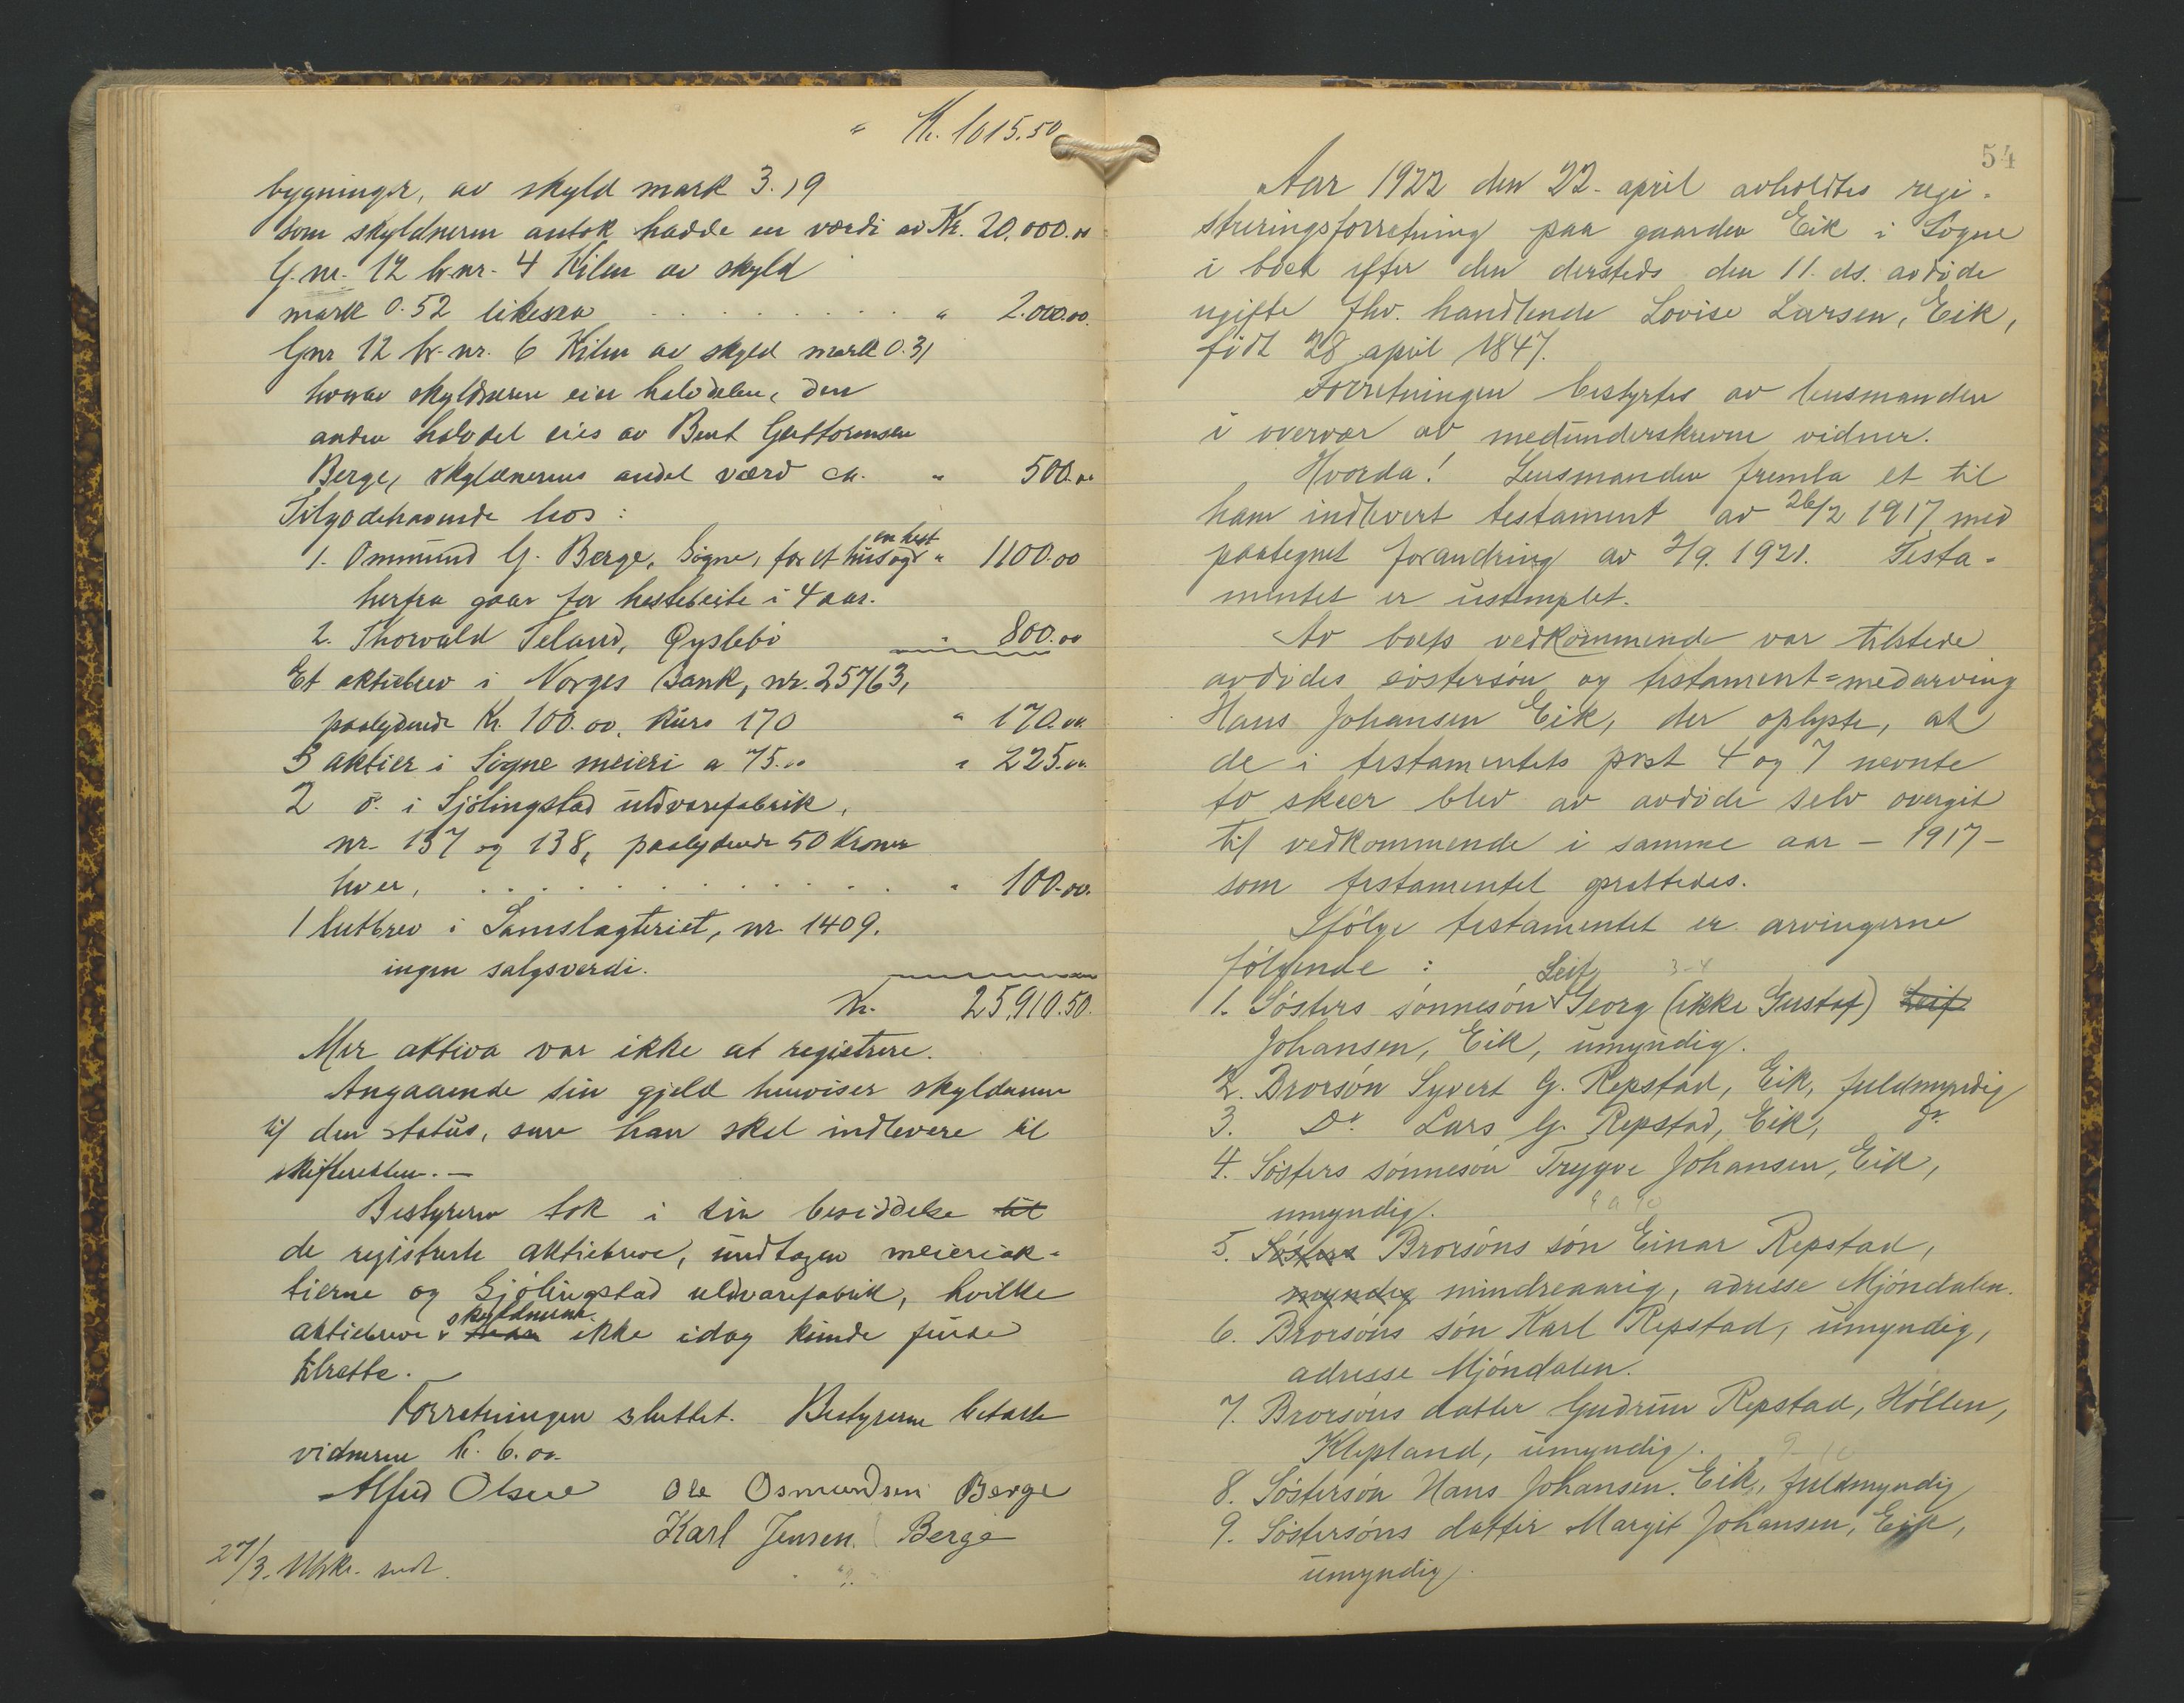 " Kr. 1015.50
bygninger, av skyld mark 3.19
som skyldneren antok hadde en værdi av Kr. 20.000.00
G.nr. 12 br.nr. 4 Kilen av skyld
mark 0.52 likesaa . . . . . . . . " 2.000.00.
Gnr 12 br.nr. 6 Kilen av skyld mark 0.31
hvorav skyldneren eier halvdelen, den
anden halvdel eies av Bent Guttormsen
Berge, skyldnerens andel værd ca. " 500.00
Tilgodehavende hos:
1. Ommund G. Berge, Søgne, for et hus og en hest " 1100.00
herfra gaar for hestebeite i 4 aar.
2. Thorvald Teland, Øyslebø " 800.00
Et aktiebrev i Norges Bank, nr. 25763,
paalydende Kr. 100.00, kurs 170 " 170.00
3 aktier i Søgne meieri a 75.00 " 225.00
2 d. i Sjølingstad uldvarefabrik,
nr. 137 og 138, paalydende 50 kroner
hver, . . . . . . . . . . " 100.00.
1 lutbrev i Samslagteriet, nr. 1409.
ingen salgsverdi.
Kr. 25,910.50.
Mer aktiva var ikke at registrere.
Angaaende sin gjeld henviser skyldneren
til den status, som han skal indlevere til
skifteretten. —
Bestyreren tok i sin besiddelse til
de registrerte aktiebreve, undtagen meieriak-
tierne og Sjølingstad uldvarefabrik, hvilke
aktiebreve skyldneren ikke idag kunde finde
tilrette.
Forretningen sluttet. Bestyreren betalte
vidnerne kr. 6.00.
Alfred Olsen Ole Osmundsen Berge
Karl Jensen Berge
27/3. Utskr. sendt.
54
Aar 1922 den 22. april avholdtes regi-
streringsforretning paa gaarden Eik i Søgne
i boet efter den dersteds den 11. ds. avdøde
ugifte fhv. handlende Lovise Larsen, Eik,
født 28 april 1847.
Forretningen bestyrtes av lensmanden
i overvær av medunderskrevne vidner.
Hvorda! Lensmanden fremla et til
ham indlevert testament av 26/2 1917 med
paategnet forandring av 2/9. 1921. Testa-
mentet er ustemplet.
Av boets vedkommende var tilstede
avdødes søstersøn og testament-medarving
Hans Johansen Eik, der oplyste, at
de i testamentets post 4 og 7 nevnte
to skeer blev av avdøde selv overgit
til vedkommende i samme aar – 1917 –
som testamentet oprettedes.
Ifølge testamentet er arvingerne
følgende: 3-4
1. Søsters sønnesøn Leif Georg (ikke Gustaf) Leif
Johansen, Eik, umyndig.
2. Brorsøn Syvert G. Repstad, Eik, fuldmyndig
3. Do. Lars G. Repstad, Eik, do.
4. Søsters sønnesøn Trygve Johansen, Eik,
umyndig.
5. Søsters Brorsøns søn Einar Repstad,
myndig mindreaarig, adresse Mjøndalen.
6. Brorsøns søn Karl Repstad, umyndig,
adresse Mjøndalen.
7. Brorsøns datter Gudrun Repstad, Høllen,
Klepland, umyndig.
8. Søstersøn Hans Johansen. Eik, fuldmyndig
9. Søstersøns datter Margit Johansen, Eik,
umyndig.